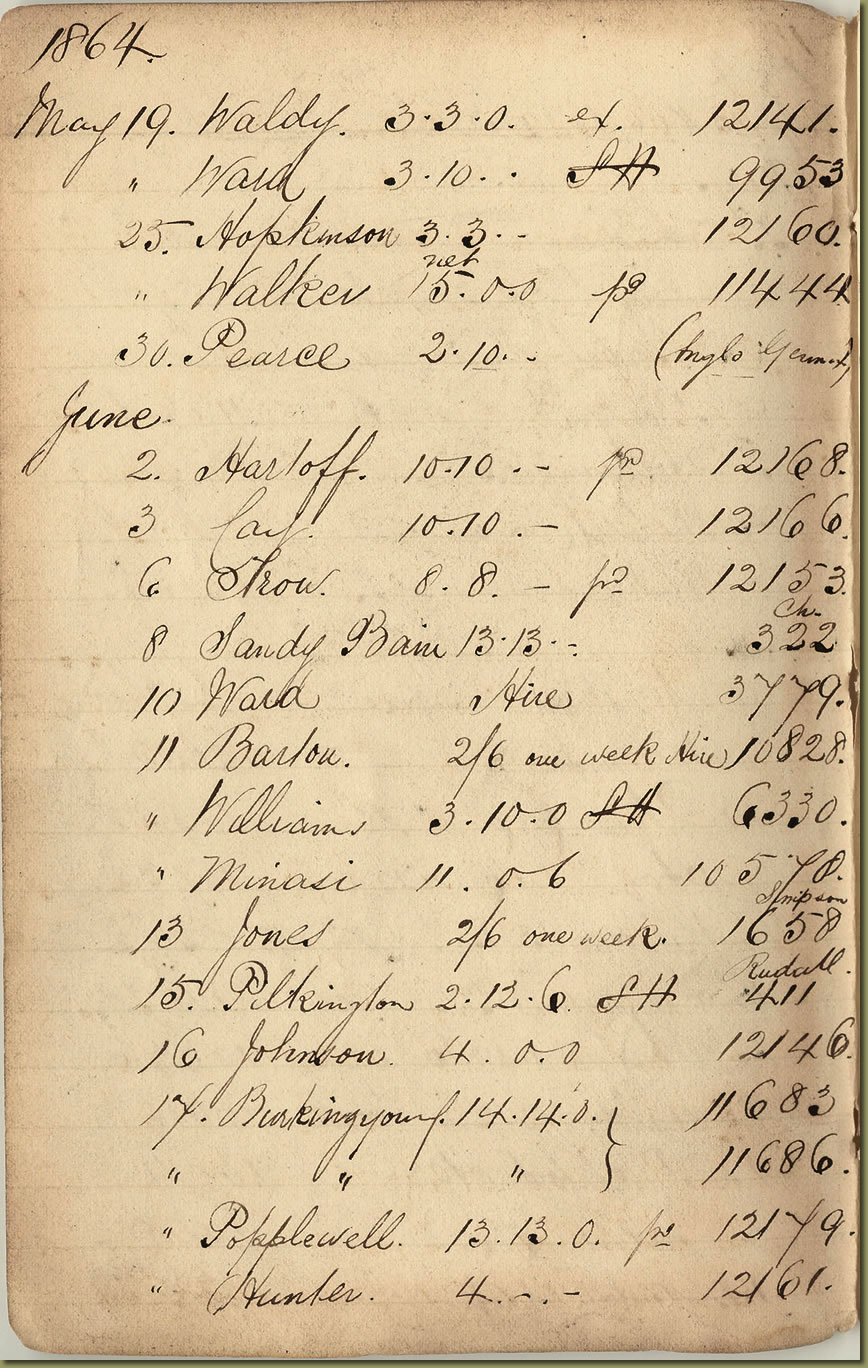 1864.
May 19. Waldy. 3.3.0. ex. 12141.
" Ward 3.10. . SH 9953
25. Hopkinson 3.3.-- 12160.
net
" Walker 15.0.0 pd 11444
30. Pearce 2.10. - (Anglo German)
June
2. Hartoff. 10.10 .- pd 12168.
3 Cay. 10.10 .- 12166.
6 Trow. 8.8. - pd 12153.
Ch.
8 Sandy Bain 13.13.- 322
10 Ward Hire 3779.
11 Barton. 2/6 one week Hire 10828.
" Williams 3.10.0 SH 6330.
" Minasi 11.0.6 10578.
Simpson
13 Jones 2/6 one week. 1658
Rudall.
15. Pilkington 2.12.6. SH 411
16 Johnson. 4.0.0 12146.
17. 14.14.0. } 11683
" " " } 11686.
" Popplewell. 13.13.0. pd 12179.
" Hunter. 4.-.- 12161.